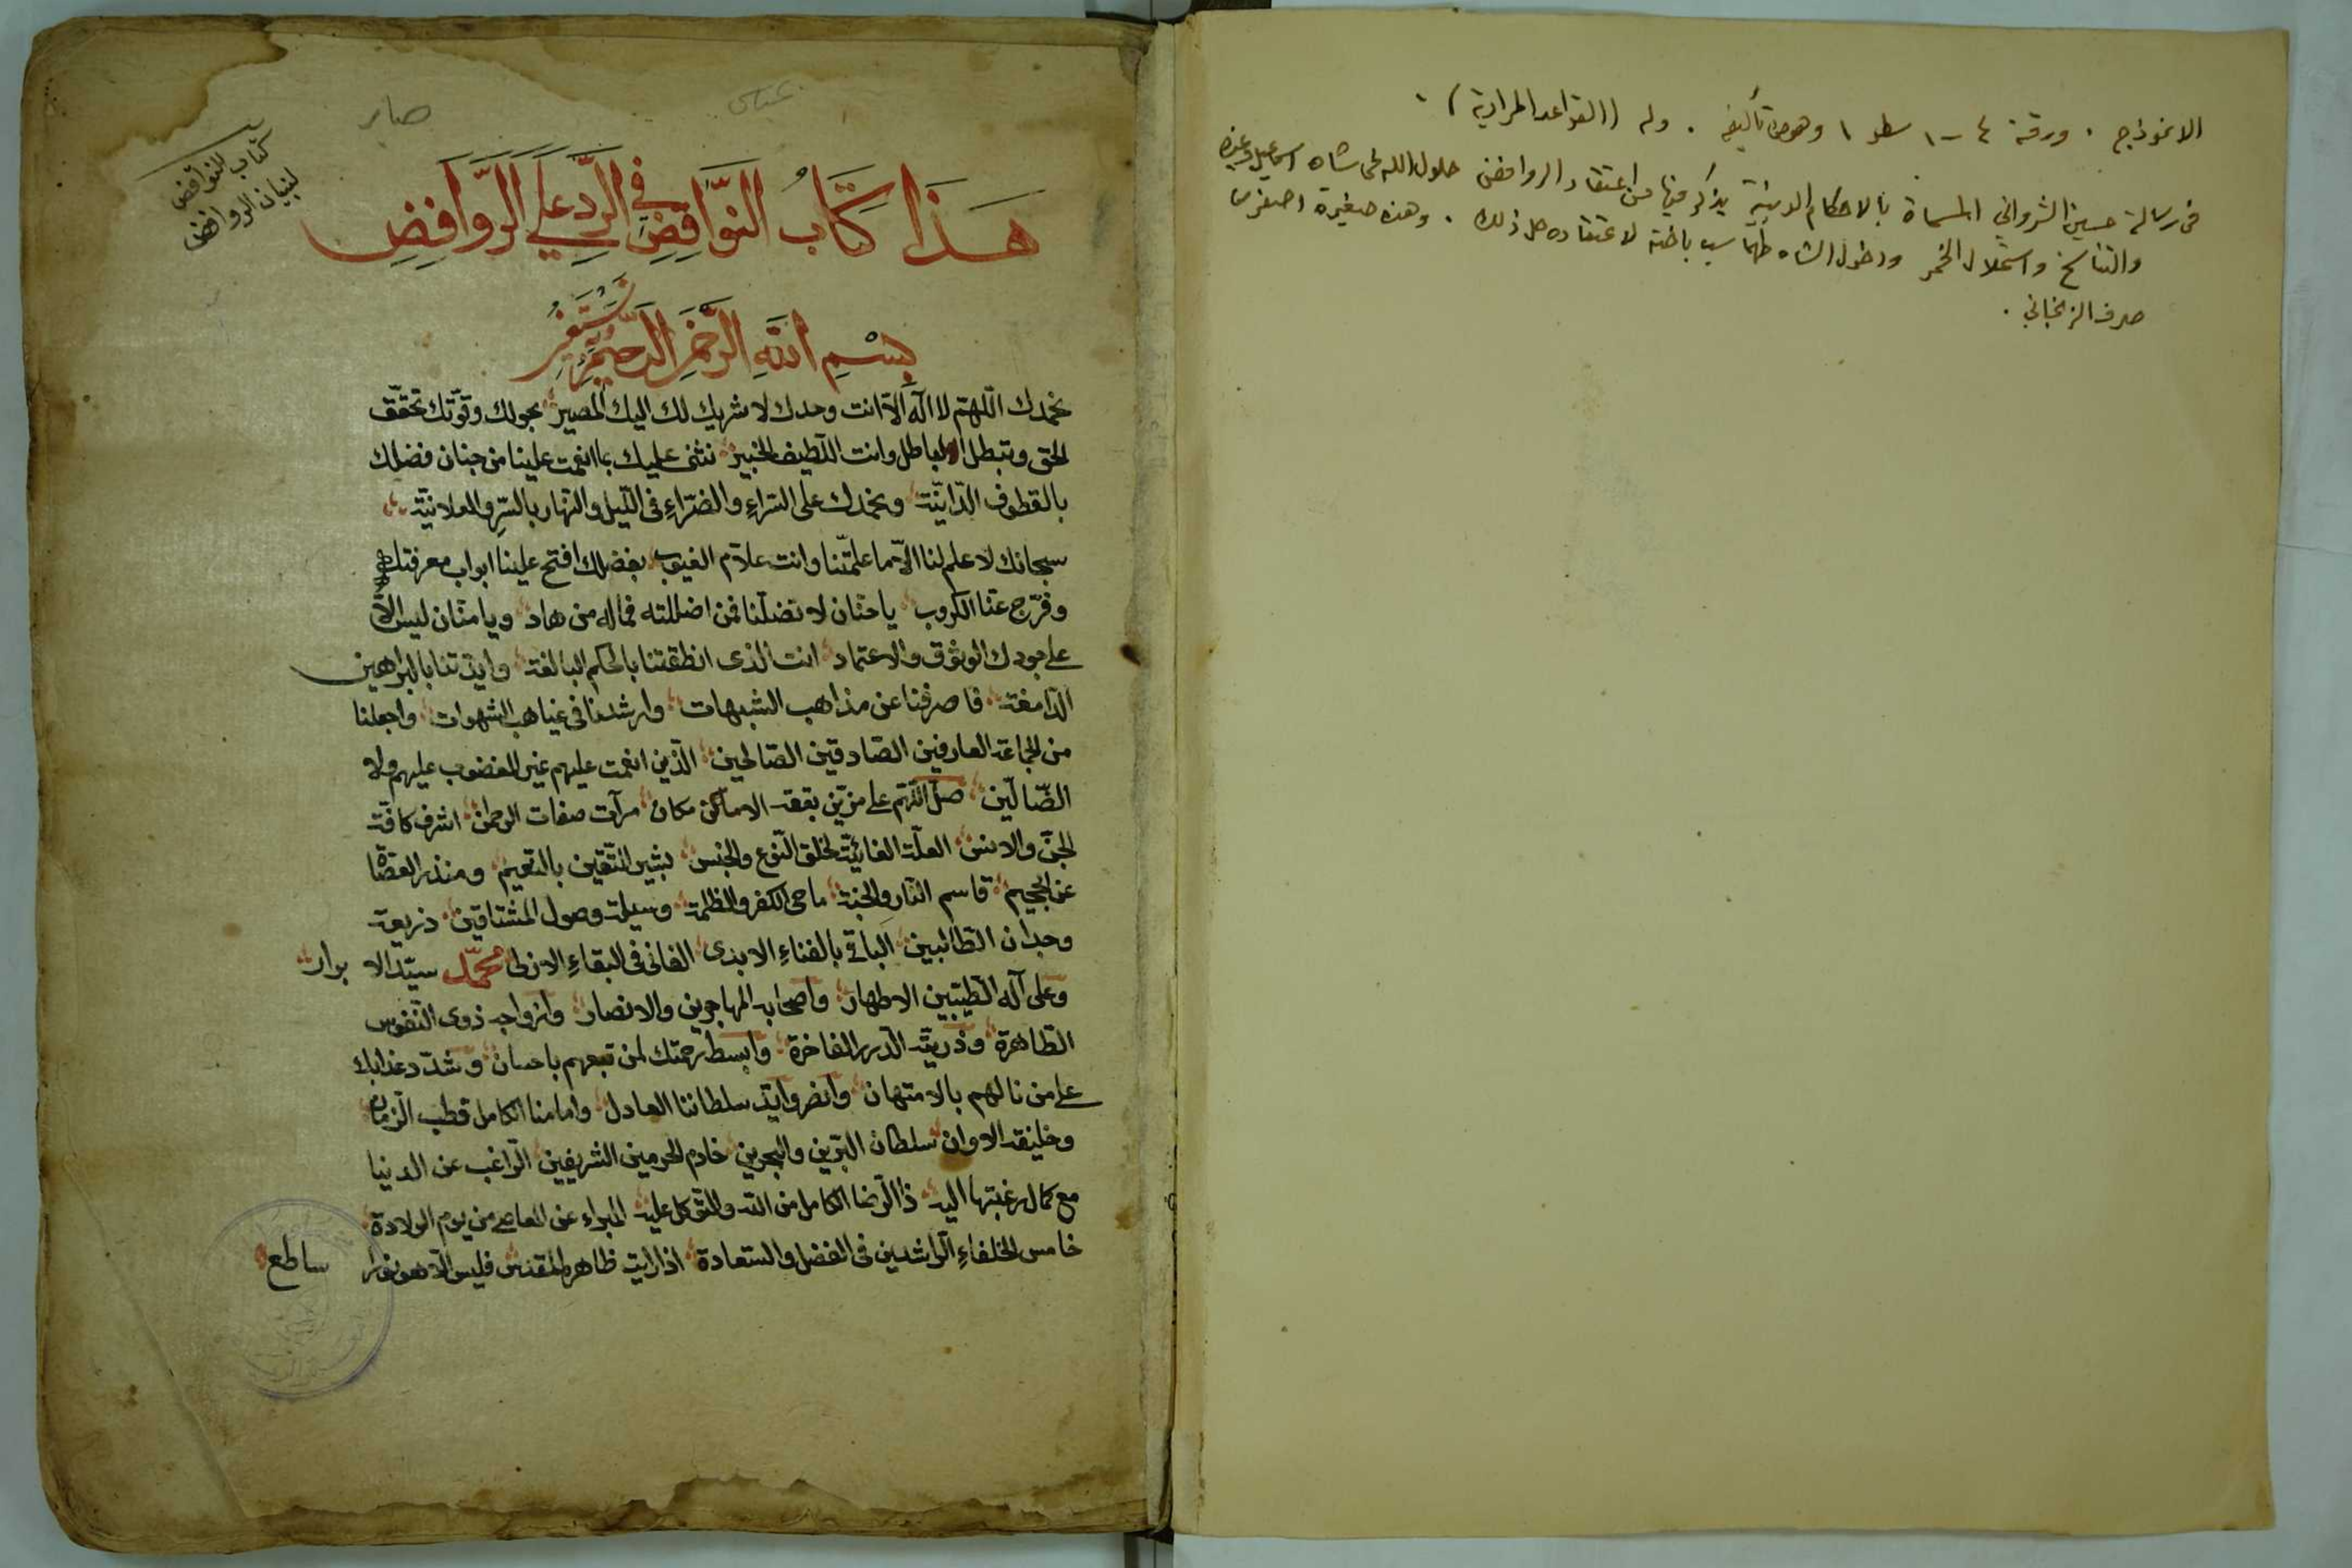 الانموذج . ورقة ٤ – ١ سطر ١ وهو من تأليفه . وله ((القواعد المرادية) .
في رسالة حسين الشرواني المسماة بالاحكام الدينية يذكر فيها من اعتقاد الروافض حلول الله في شاه اسماعيل وغيره
والتناسخ واستحلال الخمر ودخول الشاه طهماسب باخته لاعتقاده حل ذلك . وهذه صغيرة اصغر من
صرف الزنجاني .
عباس
صابر
كتاب النواقض
لبنيان الروافض
هَذَا كِتَابُ النَّوَاقِضِ فِي الرَّدِّ عَلَي الرَّوَافِضِ
بِسْمِ اللَّهِ الرَّحْمَنِ الرَّحِيمِ
نحمدك اللّهمّ لا اله الّا انت وحدك لا شريك لك اليك المصير بحولك وقوّتك تحقّق
الحق وتبطل الباطل وانت اللّطيف الخبير نثنى عليك بما انعمت علينا من جنان فضلك
بالقطوف الدّانيّة ونحمدك على السّراءِ والضّراءِ فى اللّيل والنّهار بالسّرِ والعلانيّة
سبحانك لا علم لنا الّا ما علمّتنا وانت علاّم الغيوب بفضلك افتح علينا ابواب معرفتك
وفرّج عنّا الكروب يا حنّان لا تضلّنا فمن اضللته فماله من هاد ويا منّان ليس الّا
على جودك الوثوق والاعتماد انت الذى انطقتنا بالحكم البالغة وايّدتنا بالبراهين
الدّامغة فاصرفنا عن مذاهب الشبهات وارشدنا فى غياهب الشهوات واجعلنا
من الجماعة العارفين الصّادقين الصّالحين الّذين انعمت عليهم غير المغضوب عليهم ولا
الضّالّين صلّ اللّهم على من بقعة الاماكن مكان مرآت صفات الرحمن اشرف كافّة
الجنّ والانس العلّة الغائيّة لخلق النّوع والجنس بشير المتّقين بالنّعيم ومنذر العصّاة
عن الجحيم قاسم النّار والجنة ماحى الكفر والظلمة وسيلة وصول المشتاقين ذريعة
وجدان الطّالبين الباقى بالفناءِ الابدى الفانى فى البقاءِ الازلى محمّد سيّد الابرار
وعلى آله الطّيّبين الاطهار واصحابه المهاجرين والانصار وازواجه ذوى النّفوس
الطّاهرة وذريّته الدّرر الفاخرة وابسط رحمتك لمن تبعهم باحسان وشدّد عذابك
على من نالهم بالامتهان وانصر وايّد سلطاننا العادل وامامنا الكامل قطب الزّمان
وخليفة الاوان سلطان البرّين والبحرين خادم الحرمين الشريفين الرّاغب عن الدنيا
مع كمال رغبتها اليه ذا الرّضا الكامل من اللّه والتّوكل عليه المبراء عن المعاصى من يوم الولادة
خامس الخلفاءِ الرّاشدين فى الفضل والسّعادة اذا رايت ظاهره المقدّس فليس الّا هو نور ساطع